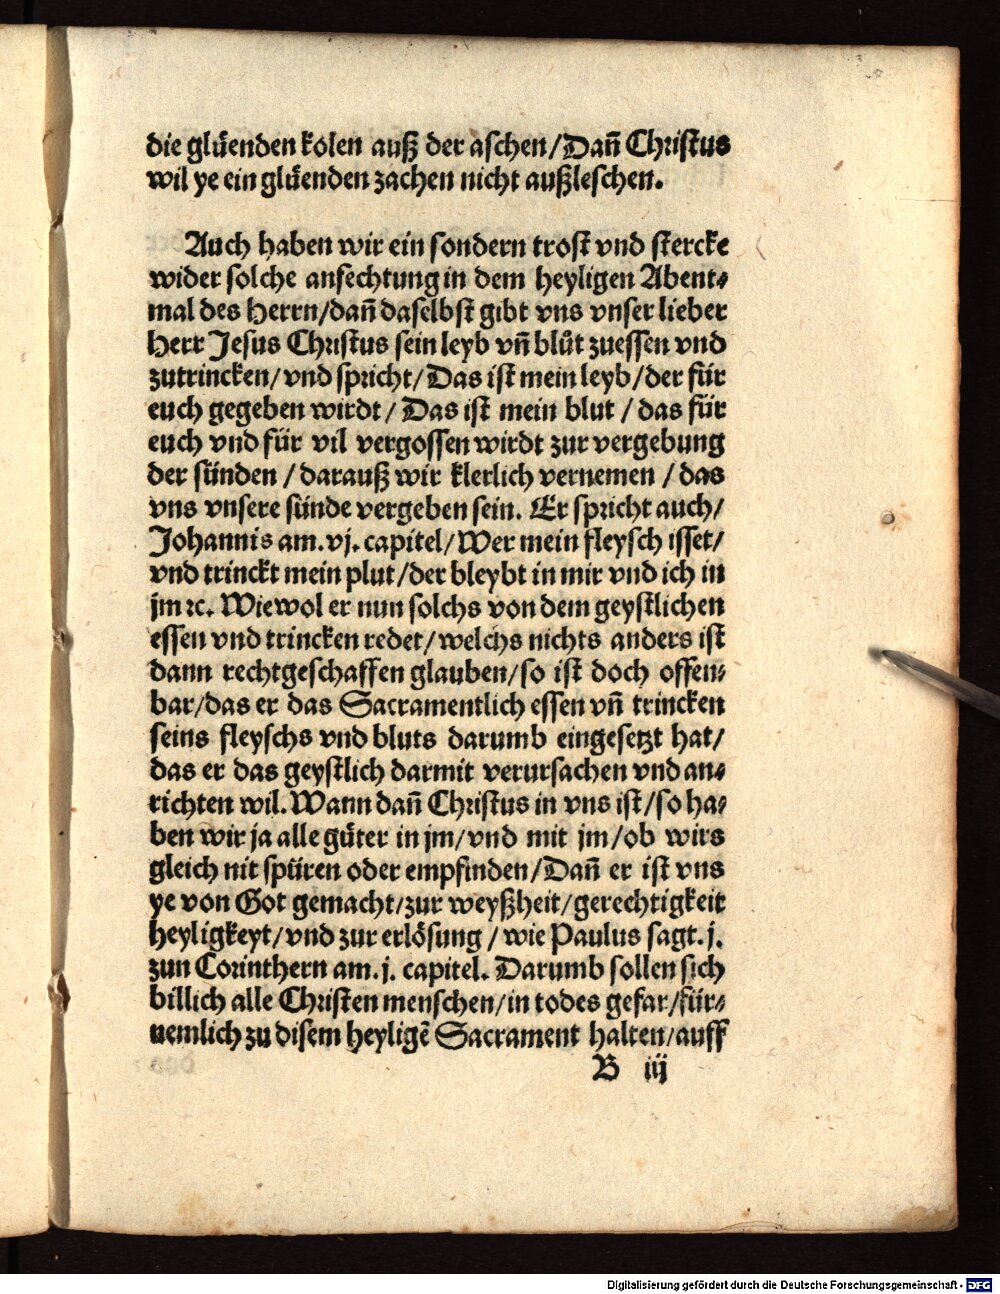 die glüenden kolen auß der aschen/Dañ Christus
wil ye ein glüenden zachen nicht außleschen.
Auch haben wir ein sondern trost vnd stercke
wider solche anfechtung in dem heyligen Abent⸗
mal des Herrn/dañ daselbst gibt vns vnser lieber
Herr Jesus Christus sein leyb vñ blůt zuessen vnd
zutrincken/vnd spricht/Das ist mein leyb/der für
euch gegeben wirdt/Das ist mein blut/das für
euch vnd für vil vergossen wirdt zur vergebung
der sünden/darauß wir klerlich vernemen/das
vns vnsere sünde vergeben sein. Er spricht auch/
Johannis am.vj.capitel/Wer mein fleysch isset/
vnd trinckt mein plut/der bleybt in mir vnd ich in
jm ꝛc. Wiewol er nun solchs von dem geystlichen
essen vnd trincken redet/welchs nichts anders ist
dann rechtgeschaffen glauben/so ist doch offen⸗
bar/das er das Sacramentlich essen vñ trincken
seins fleyschs vnd bluts darumb eingesetzt hat/
das er das geystlich darmit verursachen vnd an⸗
richten wil.Wann dañ Christus in vns ist/so ha⸗
ben wir ja alle güter in jm/vnd mit jm/ob wirs
gleich nit spüren oder empfinden/Dañ er ist vns
ye von Got gemacht/zur weyßheit/gerechtigkeit
heyligkeyt/vnd zur erlösung/wie Paulus sagt.j.
zun Corinthern am.j.capitel. Darumb sollen sich
billich alle Christen menschen/in todes gefar/für⸗
nemlich zu disem heyligẽ Sacrament halten/auff
B iij
Digitalisierung gefördert durch die Deutsche Forschungsgemeinschaft - DFG